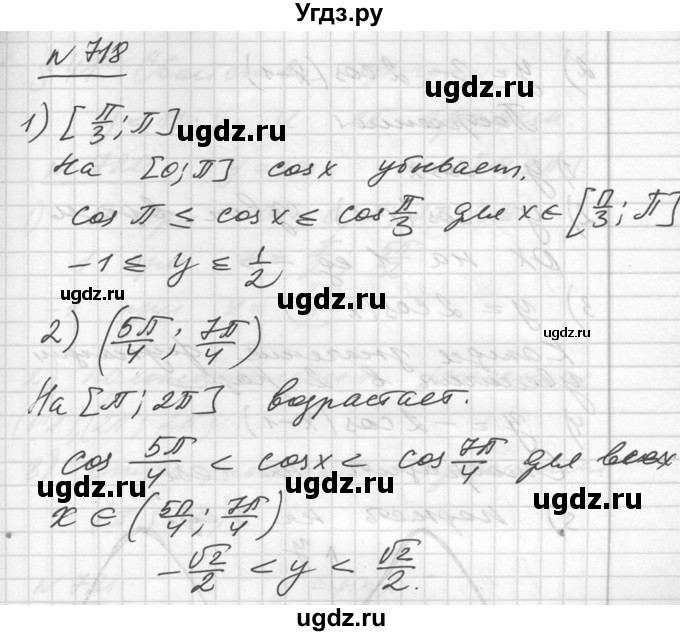 Угдз.ру
n 718
1) [π/3; π]
ugdz.ru
ugdz.ru
На [0; π] cos x убывает.
cos π ≤ cos x ≤ cos π/3 для x ∈ [π/3; π]
-1 ≤ y ≤ 1/2
ugdz.ru
ugdz.ru
ugdz.ru
2) (5π/4; 7π/4)
На [π; 2π] возрастает.
cos 5π/4 < cos x < cos 7π/4 для всех
ugdz.ru
ugdz.ru
x ∈ (5π/4; 7π/4)
-√2/2 < y < √2/2.
ugdz.ru